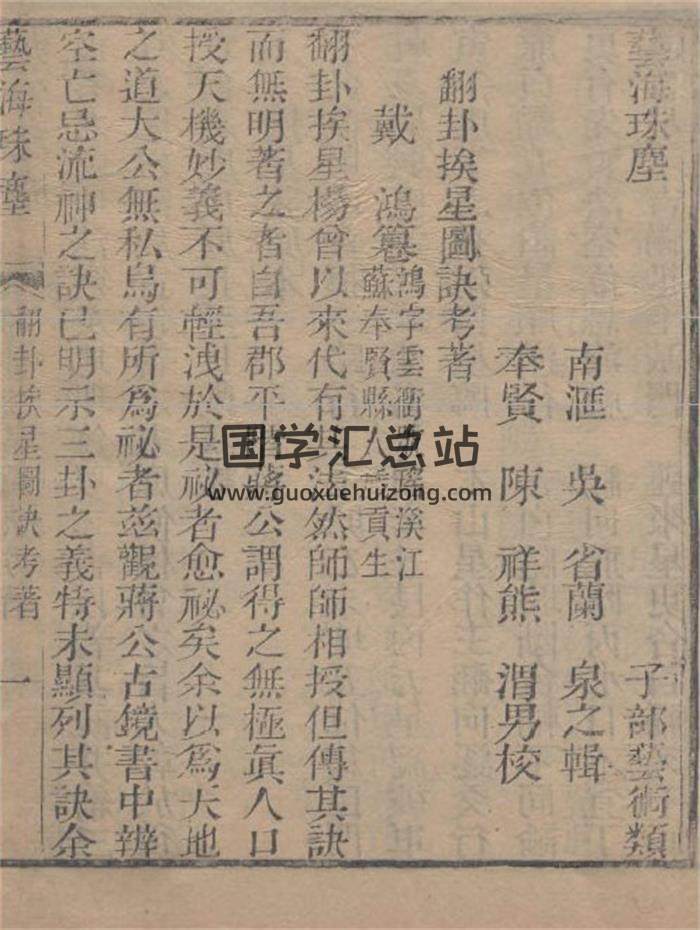 藝海珠塵 子部藝術類
南滙 吳 省蘭 泉之輯
奉賢 陳 祥熊 渭男校
翻卦挨星圖訣考著
戴 鴻篹
鴻字雲衝 溪江
蘇奉賢縣人 貢生
翻卦挨星楊曾以來代有 法然師師相授但傳其訣
而無明著之者自吾郡平 蔣公謂得之無極眞人口
授天機妙義不可輕洩於是祕者愈祕矣余以爲天地
之道大公無私烏有所爲祕者玆觀蔣公古鏡書中辨
空亡忌流神之訣已明示三卦之義特未顯列其訣余
藝海珠塵 翻卦挨星圖訣考著 一
国学汇总站
www.guoxuehuizong.com